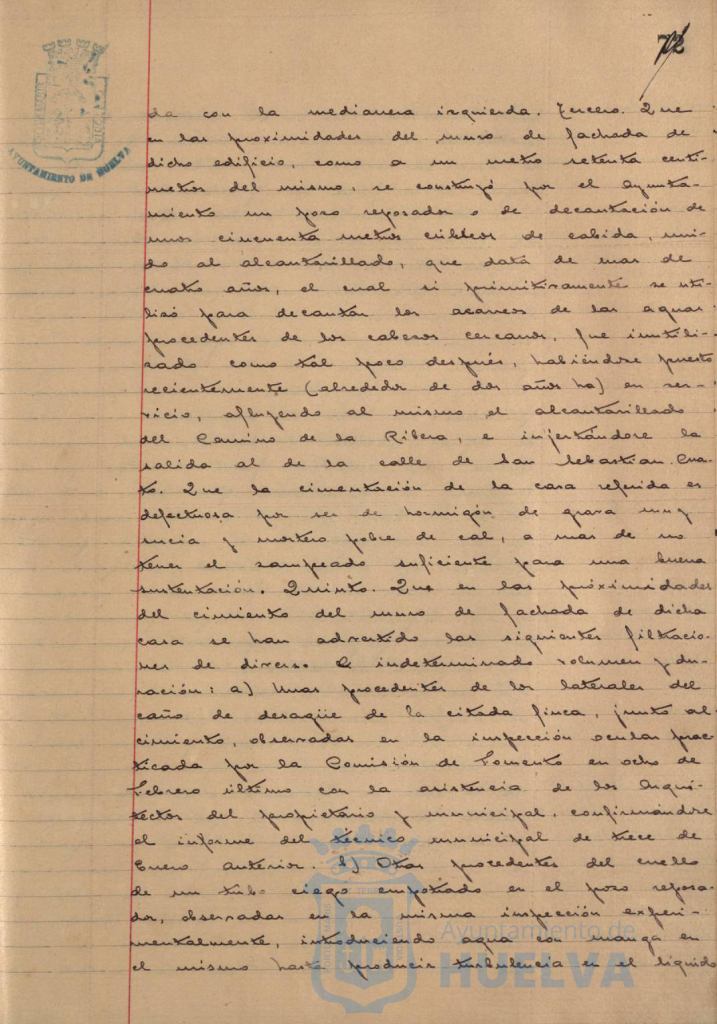 72
AYUNTAMIENTO DE HUELVA
da con la medianera izquierda. Tercero. Que
en las proximidades del muro de fachada de
dicho edificio, como a un metro setenta centi-
metros del mismo, se construyó por el Ayunta-
miento un pozo reposador o de decantación de
unos cincuenta metros cúbicos de cabida, uni-
do al alcantarillado, que data de mas de
cuatro años, el cual si primitivamente se uti-
lizó para decantar los acarreos de las aguas
procedentes de los cabezos cercanos, fue inutili-
zado como tal poco después, habiéndose puesto
recientemente (alrededor de dos años ha) en ser-
vicio, afluyendo al mismo el alcantarillado
del Camino de la Ribera, e injertándose la
salida al de la calle de San Sebastian. Cua-
to. Que la cimentación de la casa referida es
defectuosa por ser de hormigón de grava muy
sucia y mortero pobre de cal, a mas de no
tener el zampeado suficiente para una buena
sustentación. Quinto. Que en las próximidades
del cimiento del muro de fachada de dicha
casa se han advertido las siguientes filtracio-
nes de diverso e indeterminado volumen y du-
ración: a) Unas procedentes de los laterales del
caño de desagüe de la citada finca, junto al
cimiento, observadas en la inspección ocular prac-
ticada por la Comisión de Fomento en ocho de
Febrero último con la asistencia de los Arqui-
tectos del propietario y municipal, confirmándose
el informe del técnico municipal de trece de
Enero anterior. b) Otras procedentes del cuello
de un tubo ciego empotrado en el pozo reposa-
dor, observadas en la misma inspección experi-
mentalmente, introduciendo agua con manga en
el mismo hasta producir turbulencia en el líquido
Ayuntamiento de
HUELVA